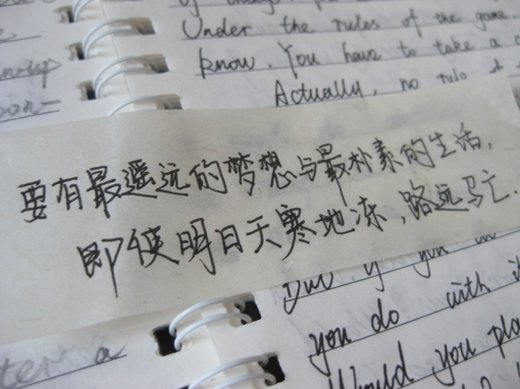 Under the rules of the game.
know. You have to take a
Actually, no rule
要有最遥远的梦想与最朴素的生活,
即使明日天寒地冻,路远马亡.
you do with
Would you